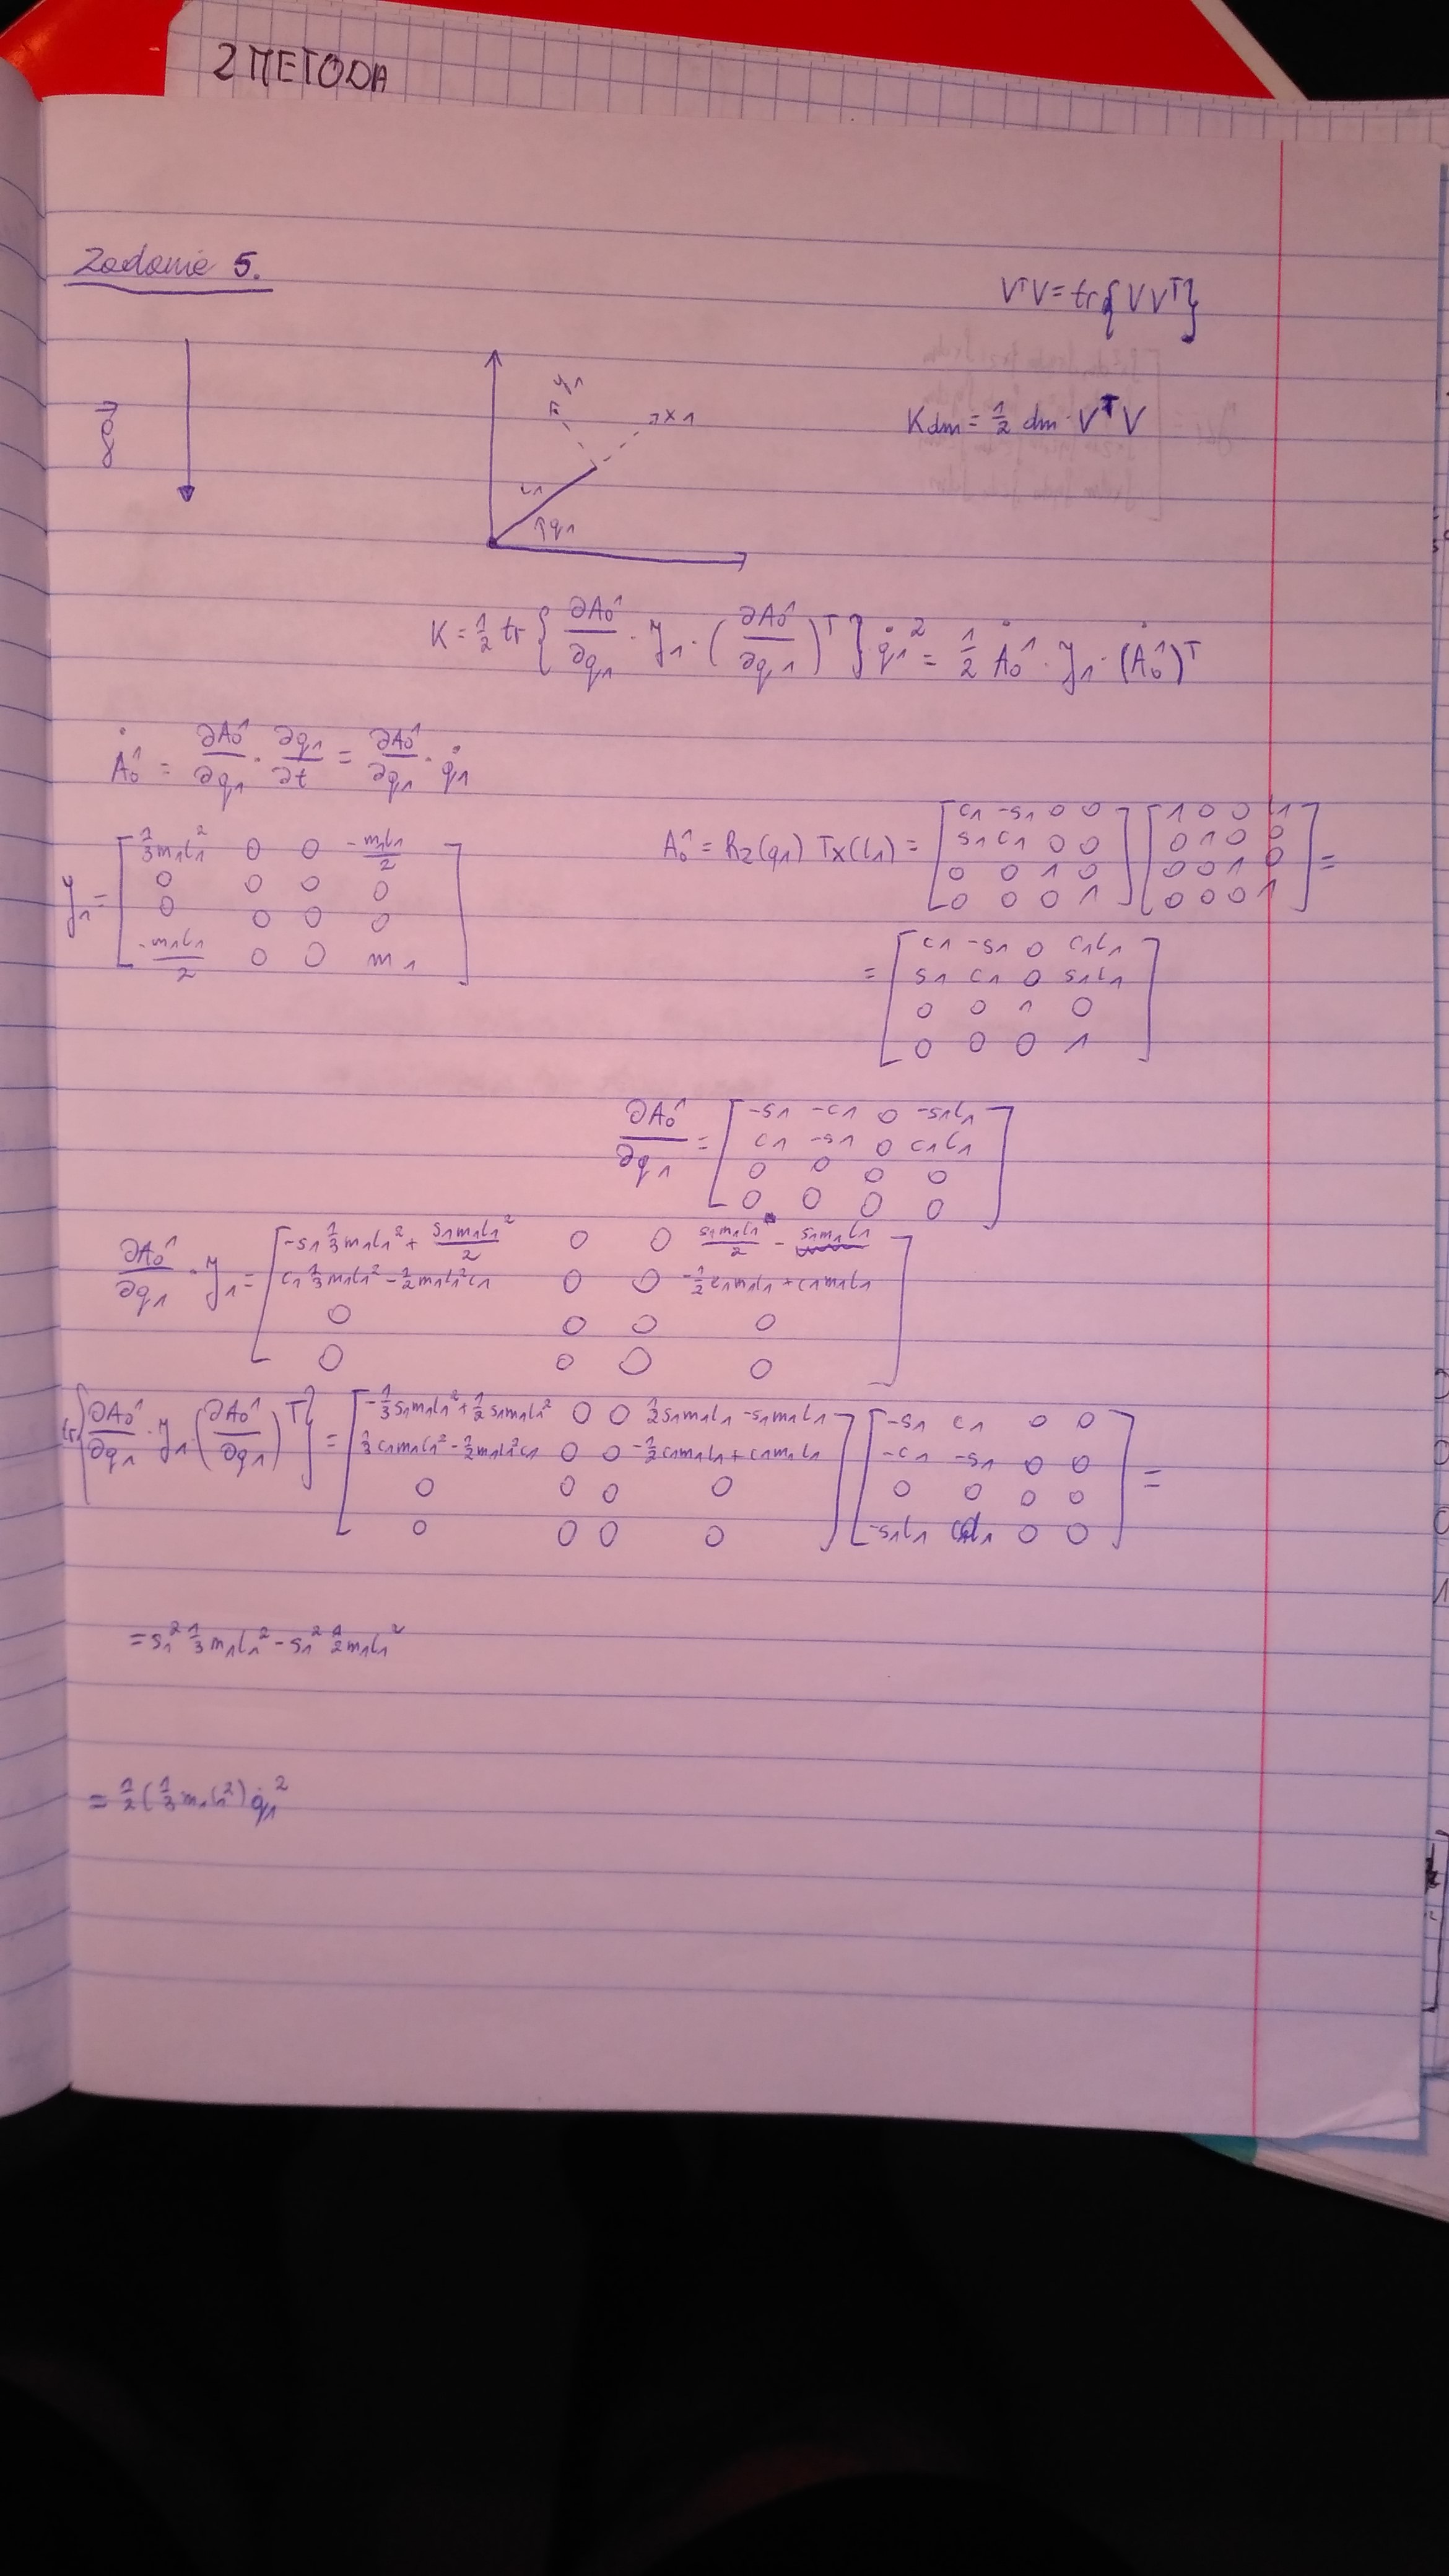 2 METODA
Zadanie 5.
VᵀV = tr{VVᵀ}
g⃗
y1
x1
L1
q1
Kdm = 1/2 dm · VᵀV
K = 1/2 tr { ∂A₀¹/∂q1 · J1 · (∂A₀¹/∂q1)ᵀ } q̇1² = 1/2 Ȧ₀¹ · J1 · (Ȧ₀¹)ᵀ
Ȧ₀¹ = ∂A₀¹/∂q1 · ∂q1/∂t = ∂A₀¹/∂q1 · q̇1
J1 = [ 1/3 m1l1² 0 0 -m1l1/2
0 0 0 0
0 0 0 0
-m1l1/2 0 0 m1 ]
A₀¹ = Rz(q1) Tx(l1) = [ c1 -s1 0 0 ] [ 1 0 0 l1 ]
s1 c1 0 0 0 1 0 0
0 0 1 0 0 0 1 0 =
0 0 0 1 0 0 0 1
= [ c1 -s1 0 c1l1
s1 c1 0 s1l1
0 0 1 0
0 0 0 1 ]
∂A₀¹/∂q1 = [ -s1 -c1 0 -s1l1
c1 -s1 0 c1l1
0 0 0 0
0 0 0 0 ]
∂A₀¹/∂q1 · J1 = [ -s1 1/3 m1l1² + s1m1l1²/2 0 0 s1m1l1/2 - s1m1l1
c1 1/3 m1l1² - 1/2 m1l1²c1 0 0 -1/2 c1m1l1 + c1m1l1
0 0 0 0
0 0 0 0 ]
tr{ ∂A₀¹/∂q1 · J1 · (∂A₀¹/∂q1)ᵀ } = [ -1/3 s1m1l1² + 1/2 s1m1l1² 0 0 1/2 s1m1l1 - s1m1l1 ] [ -s1 c1 0 0 ]
1/3 c1m1l1² - 1/2 m1l1²c1 0 0 -1/2 c1m1l1 + c1m1l1 -c1 -s1 0 0 =
0 0 0 0 0 0 0 0
0 0 0 0 -s1l1 c1l1 0 0
= s1² 1/3 m1l1² - s1² 1/2 m1l1²
= 1/2 (1/3 m1l1²) q̇1²